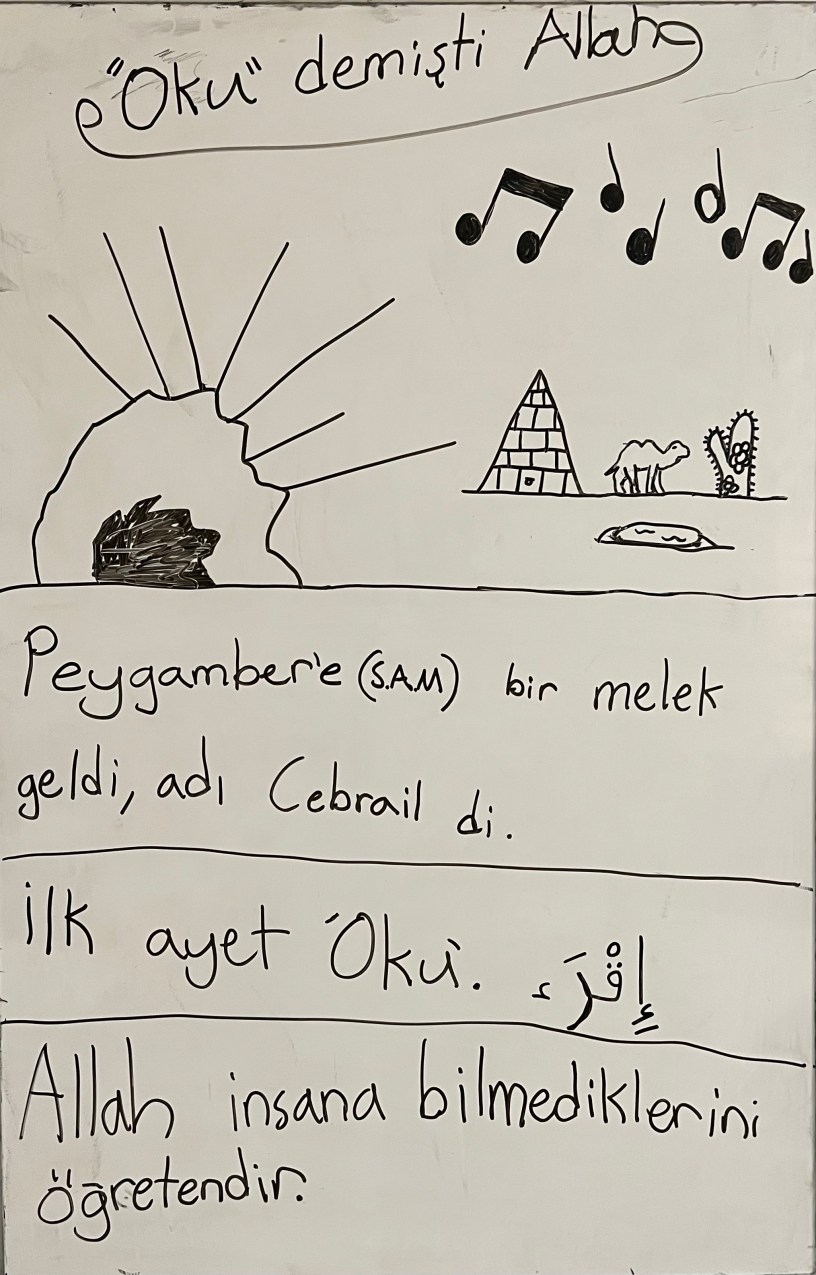 "Oku" demişti Allah
Peygamber'e (S.A.M) bir melek
geldi, adı Cebrail di.
ilk ayet "Oku". إِقْرَء
Allah insana bilmediklerini
öğretendir.